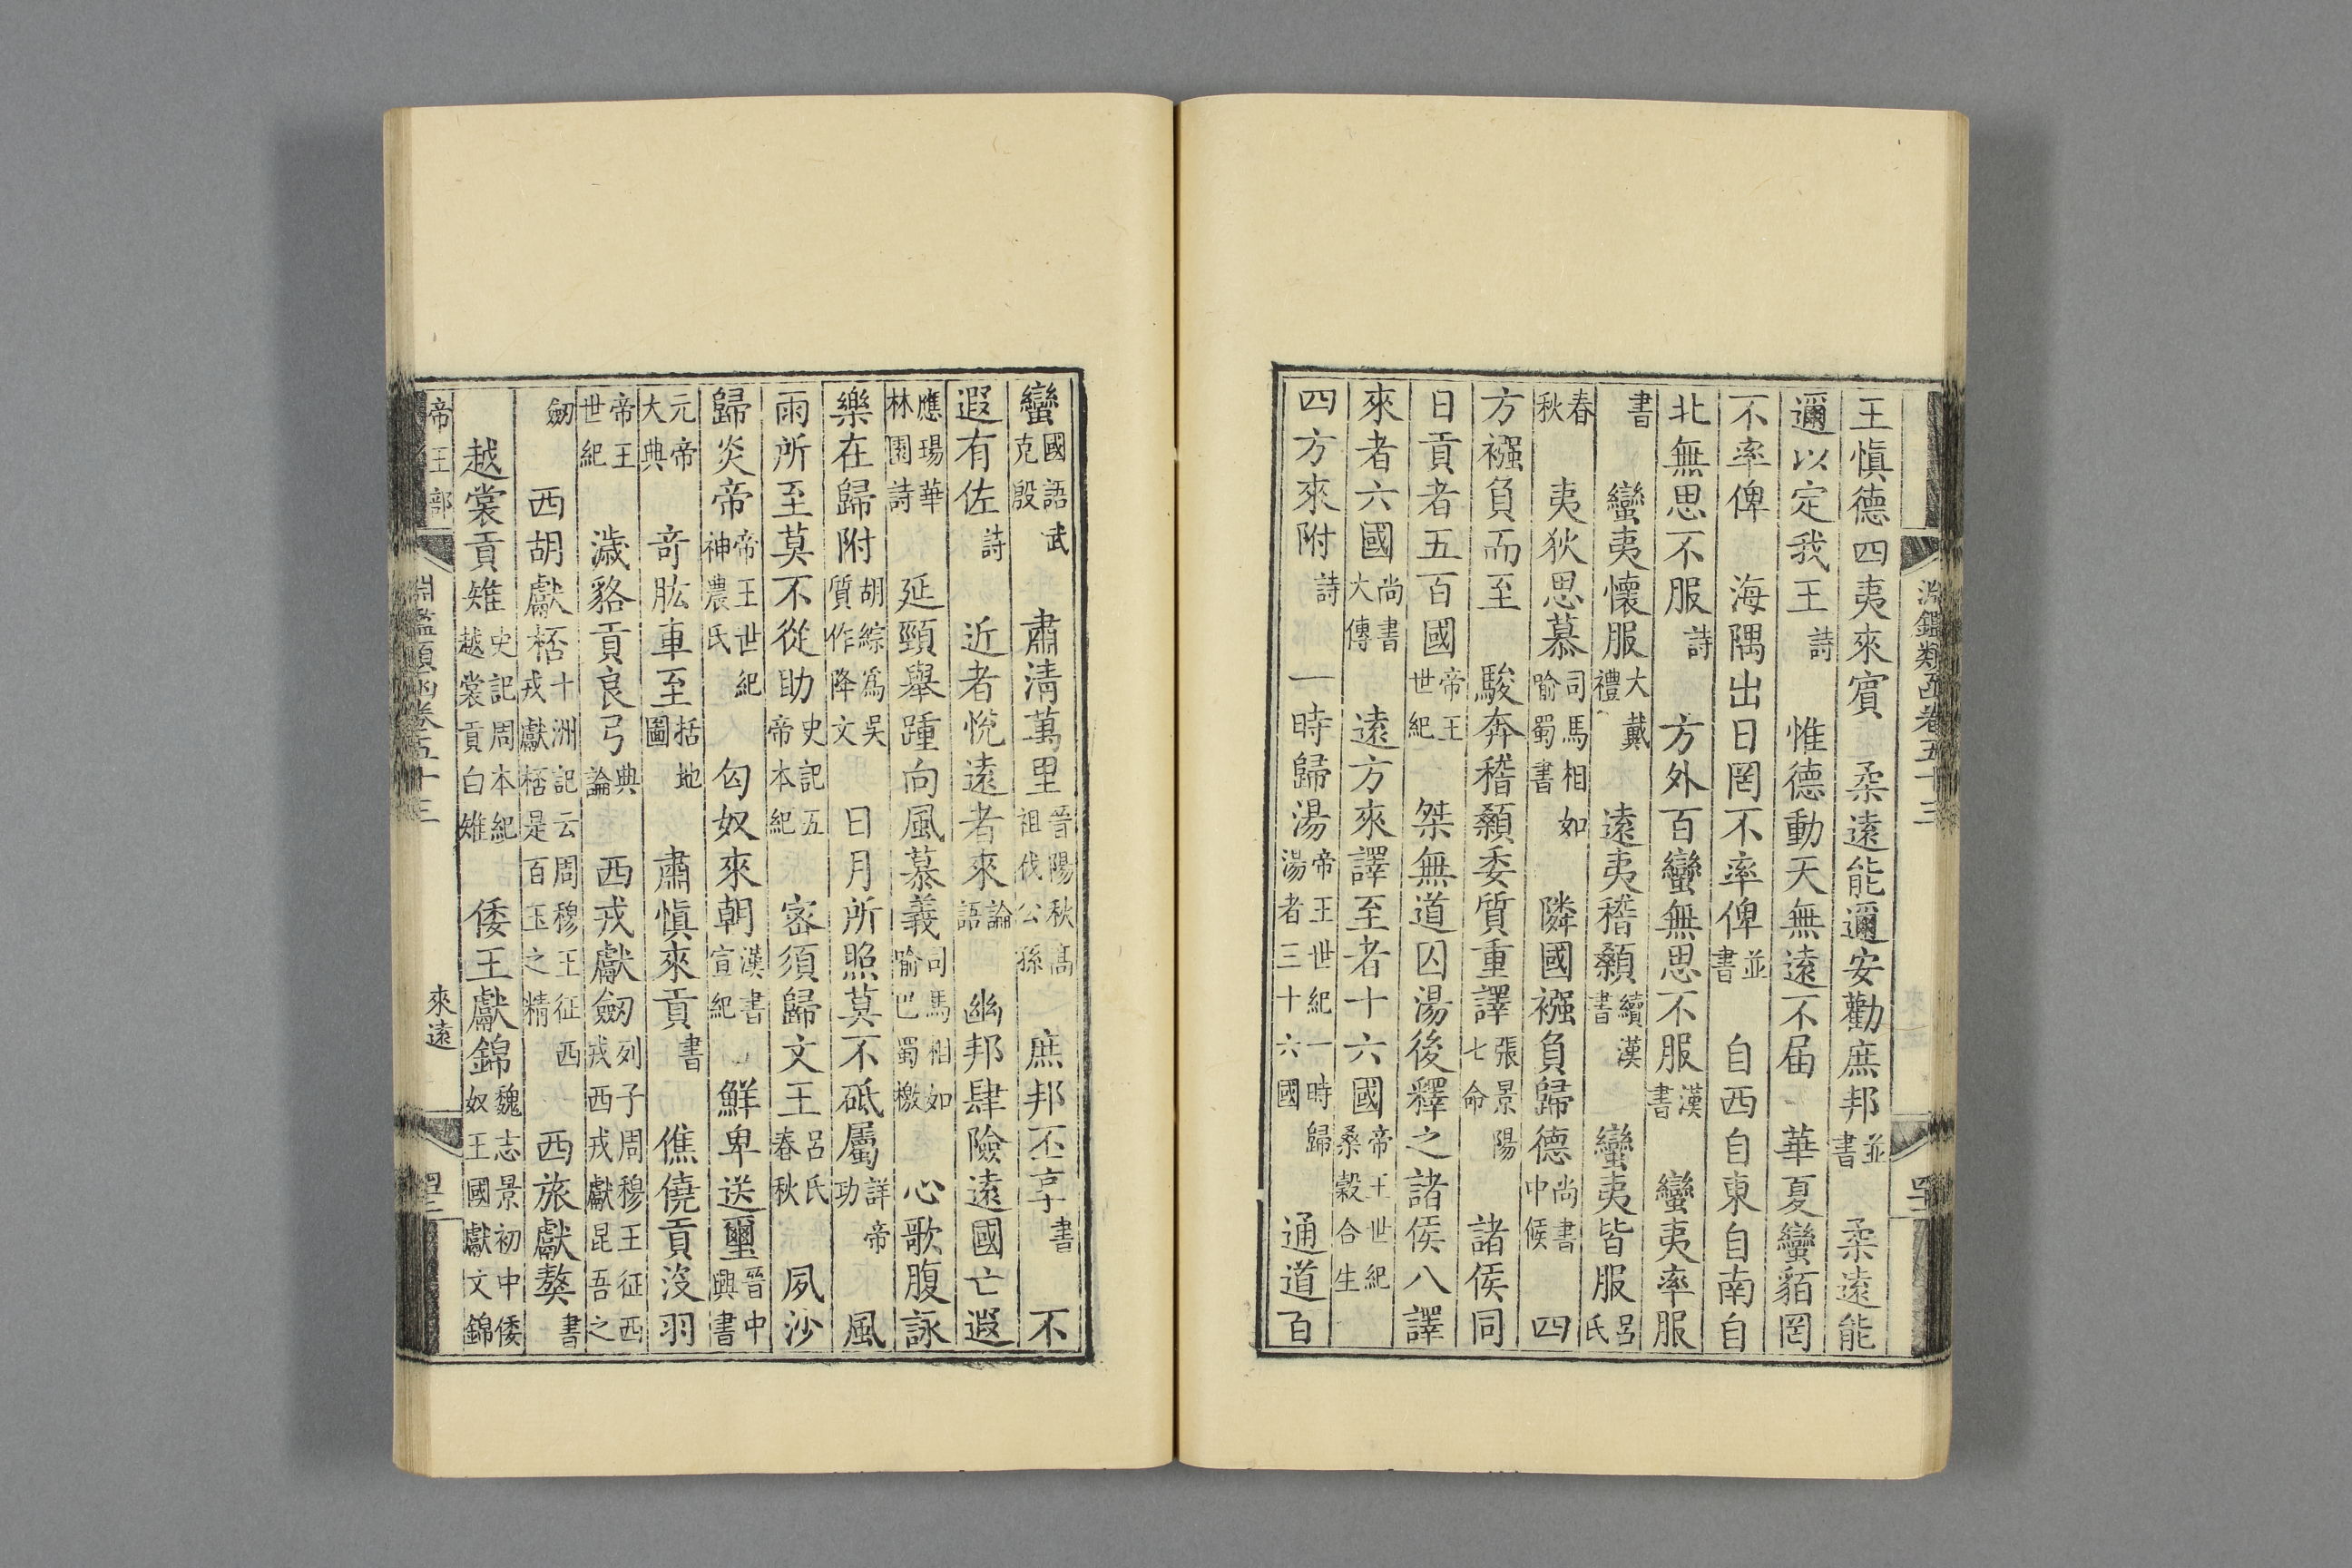 淵鑑類函卷五十三
王慎德四夷來賓 柔遠能邇安勸庶邦並書 柔遠能
邇以定我王詩 惟德動天無遠不届 華夏蠻貊罔
不率俾 海隅出日罔不率俾並書 自西自東自南自
北無思不服詩 方外百蠻無思不服漢書 蠻夷率服
書 蠻夷懷服大戴禮 遠夷稽顙續漢書 蠻夷皆服呂氏
春秋 夷狄思慕司馬相如喻蜀書 隣國襁負歸德尚書中候 四
方襁負而至 駿奔稽顙委質重譯張景陽七命 諸侯同
日貢者五百國帝王世紀 桀無道囚湯後釋之諸侯八譯
來者六國尚書大傳 遠方來譯至者十六國帝王世紀桑穀合生
四方來附詩 一時歸湯帝王世紀一時歸湯者三十六國 通道百
蠻國語武克殷 肅清萬里晉陽秋高祖伐公孫 庶邦丕享書 不
遐有佐詩 近者悅遠者來論語 幽邦肆險遠國亡遐
應瑒華林園詩 延頸舉踵向風慕義司馬相如喻巴蜀檄 心歌腹詠
樂在歸附胡綜為吳質作降文 日月所照莫不砥屬詳帝功 風
雨所至莫不從助史記五帝本紀 密須歸文王呂氏春秋 夙沙
歸炎帝帝王世紀神農氏 匈奴來朝漢書宣紀 鮮卑送璽晉中興書
元帝大典 奇肱車至括地圖 肅慎來貢書 僬僥貢沒羽
帝王世紀 濊貉貢良弓典論 西戎獻劒列子周穆王征西戎西戎獻昆吾之
劒 西胡獻桮十洲記云周穆王征西戎獻桮是百玉之精 西旅獻獒書
越裳貢雉史記周本紀越裳貢白雉 倭王獻錦魏志景初中倭奴王國獻文錦
帝王部 淵鑑類函卷五十三 來遠